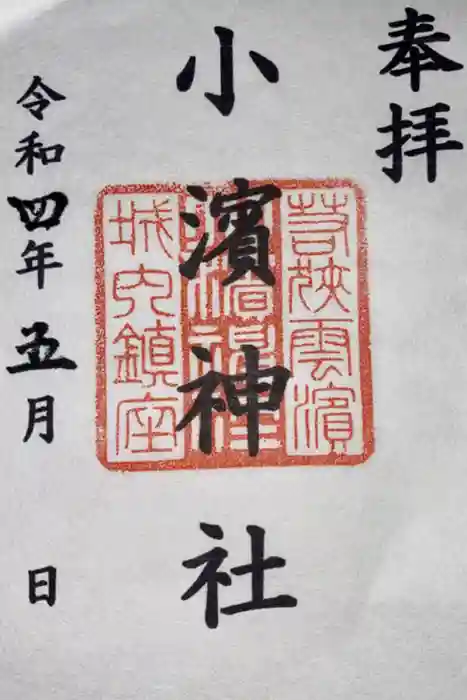 奉拝
小濱神社
令和四年五月 日
若狹雲濱
城内鎮座